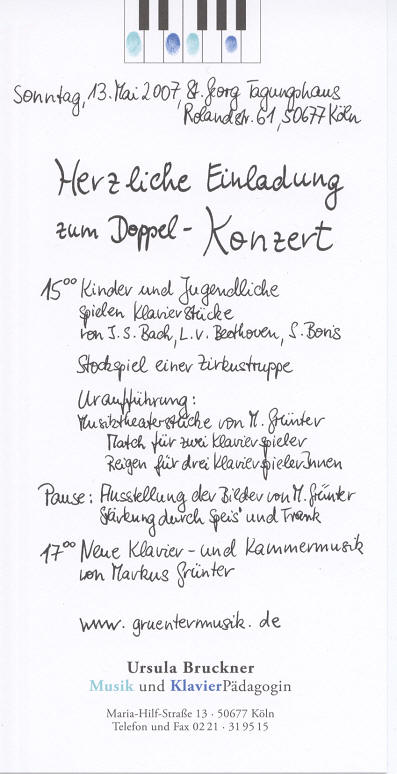 Sonntag, 13. Mai 2007, St. Georg Tagungshaus
Rolandstr. 61, 50677 Köln
Herzliche Einladung
zum Doppel-Konzert
15⁰⁰ Kinder und Jugendliche
spielen Klavierstücke
von J. S. Bach, L. v. Beethoven, S. Boris
Stockspiel einer Zirkustruppe
Uraufführung:
Musiktheaterstücke von M. Grünter
Match für zwei Klavierspieler
Reigen für drei KlavierspielerInnen
Pause: Ausstellung der Bilder von M. Grünter
Stärkung durch Speis' und Trank
17⁰⁰ Neue Klavier- und Kammermusik
von Markus Grünter
www.gruentermusik.de
Ursula Bruckner
Musik und KlavierPädagogin
Maria-Hilf-Straße 13 · 50677 Köln
Telefon und Fax 02 21 · 31 95 15